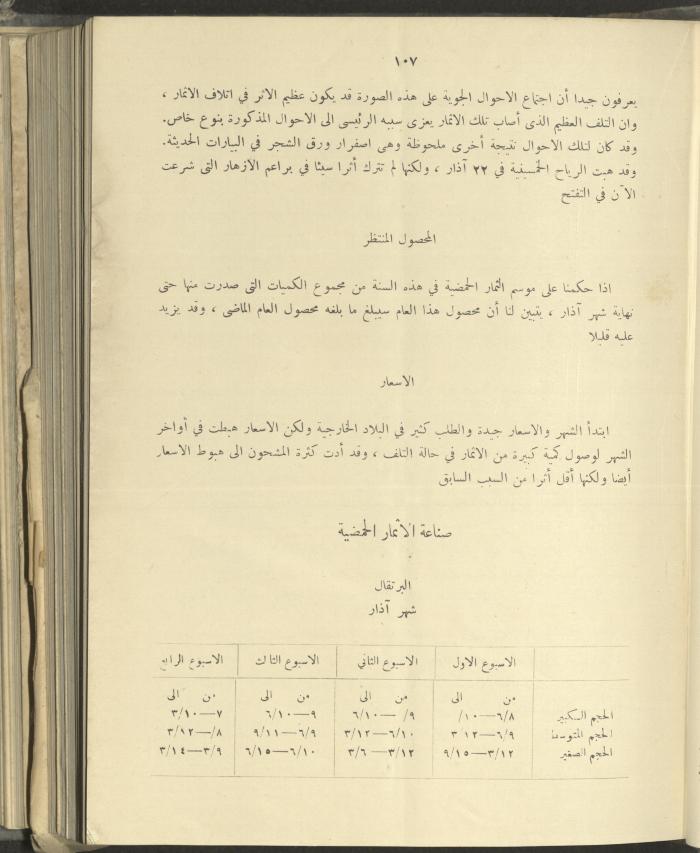 ١٠٧
يعرفون جيدا أن اجتماع الاحوال الجوية على هذه الصورة قد يكون عظيم الاثر في اتلاف الاثمار ،
وان التلف العظيم الذى أصاب تلك الاثمار يعزى سببه الرئيسى الى الاحوال المذكورة بنوع خاص.
وقد كان لتلك الاحوال نتيجة أخرى ملحوظة وهى اصفرار ورق الشجر في البيارات الحديثة.
وقد هبت الرياح الخمسينية في ٢٢ آذار ، ولكنها لم تترك أثرا سيئا في براعم الازهار التى شرعت
الآن في التفتح
المحصول المنتظر
اذا حكمنا على موسم الثمار الحمضية في هذه السنة من مجموع الكميات التى صدرت منها حتى
نهاية شهر آذار ، يتبين لنا أن محصول هذا العام سيبلغ ما بلغه محصول العام الماضى ، وقد يزيد
عليه قليلا
الاسعار
ابتدأ الشهر والاسعار جيدة والطلب كثير في البلاد الخارجية ولكن الاسعار هبطت في أواخر
الشهر لوصول كمية كبيرة من الاثمار في حالة التلف ، وقد أدت كثرة المشحون الى هبوط الاسعار
أيضا ولكنها أقل أثرا من السبب السابق
صناعة الاثمار الحمضية
البرتقال
شهر آذار
الاسبوع الاول الاسبوع الثاني الاسبوع الثالث الاسبوع الرابع
من الى من الى من الى من الى
الحجم الكبير ٦/٨—١٠/ ٩/—٦/١٠ ٩—٦/١٠ ٧—٣/١٠
الحجم المتوسط ٦/٩—٣/١٢ ٦/١٠—٣/١٢ ٦/٩—٩/١١ ٨/—٣/١٢
الحجم الصغير ٣/١٢—٩/١٥ ٣/١٢—٣/٦ ٦/١٠—٦/١٥ ٣/٩—٣/١٤